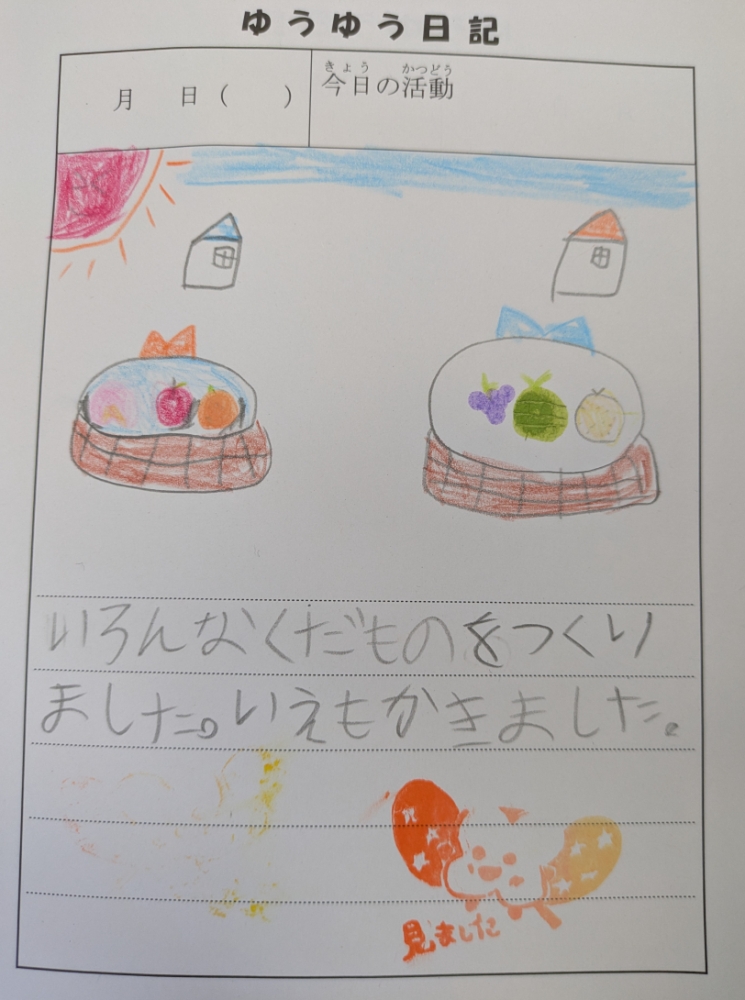 ゆうゆう日記
月 日( )
きょう かつどう
今日の活動
いろんなくだものをつくり
ました。いえもかきました。
見ました